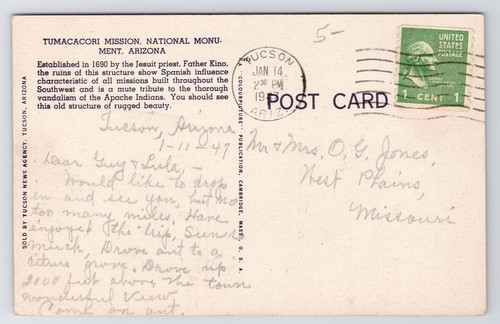 TUMACACORI MISSION, NATIONAL MONU-
MENT, ARIZONA
Established in 1690 by the Jesuit priest, Father Kino,
the ruins of this structure show Spanish influence
characteristic of all missions built throughout the
Southwest and is a mute tribute to the thorough
vandalism of the Apache Indians. You should see
this old structure of rugged beauty.
Tucson, Arizona
1-11-47
Dear Guy & Lula,-
Would like to drop
in and see you, but
too many miles. Have
enjoyed the trip,
much. Drove out to a
citrus grove. Drove up
2000 feet above the town
wonderful View.
Come on out.
SOLD BY TUCSON NEWS AGENCY, TUCSON, ARIZONA
"COLOURPICTURE" PUBLICATION, CAMBRIDGE, MASS., U. S. A.
5-
TUCSON
JAN 14
2 30 PM
ARIZ.
UNITED STATES
POSTAGE
1 CENT 1
POST CARD
Mr & Mrs. O. G. Jones,
West Plains,
Missouri